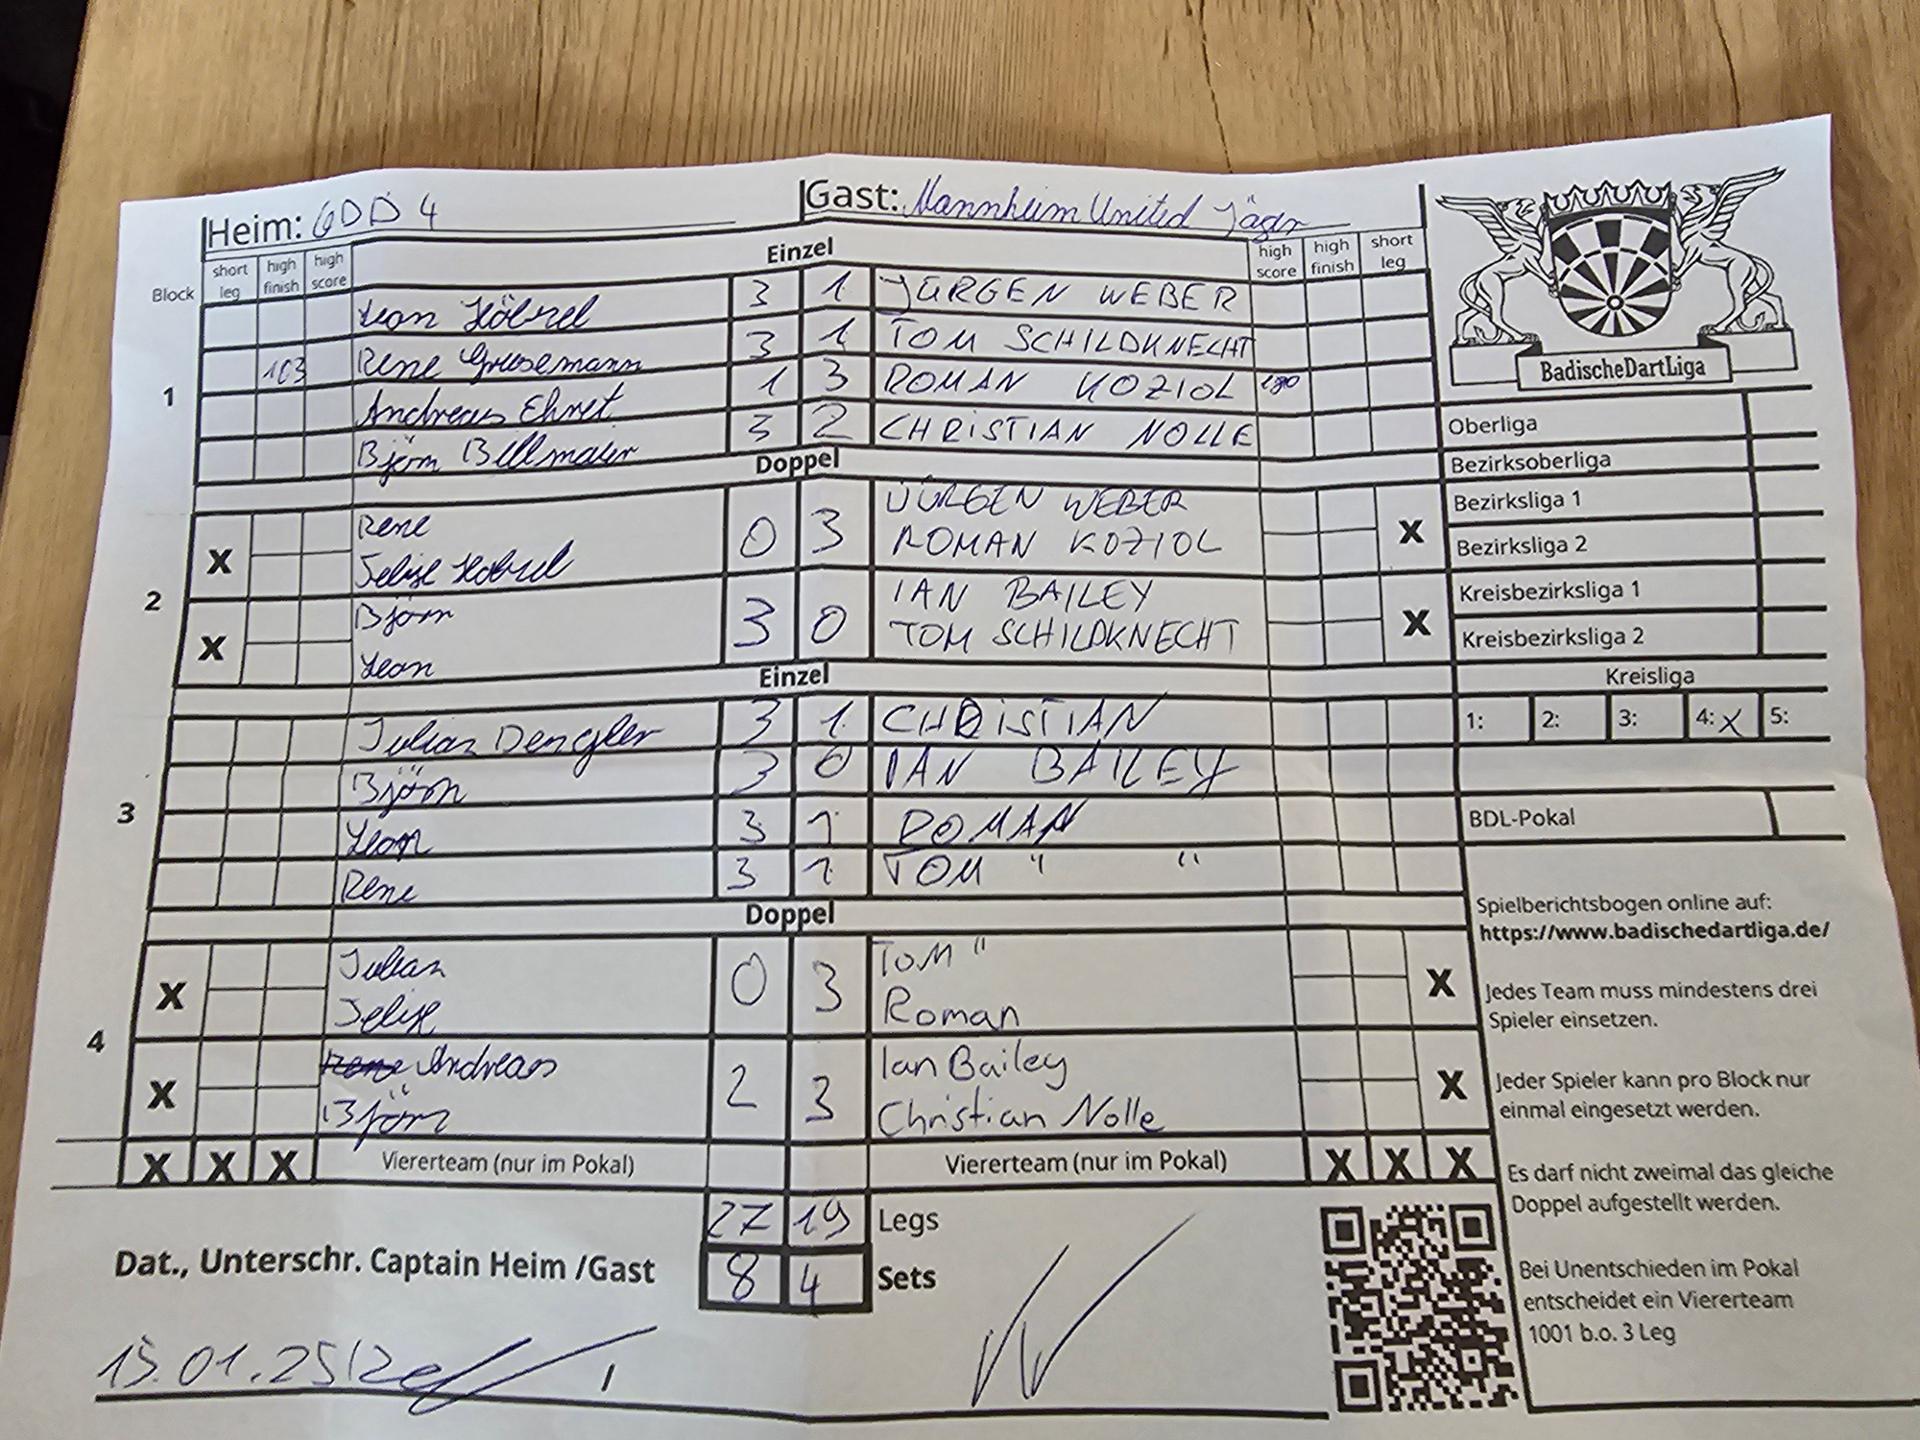 Heim: GDD 4 Gast: Mannheim United Jäger
Einzel
Block short leg high finish high score high score high finish short leg
1
Leon Höbzel 3 1 JÜRGEN WEBER
103 Rene 3 1 TOM SCHILDKNECHT
Andreas Ehret 1 3 ROMAN KOZIOL 180
Björn Billmaier 3 2 CHRISTIAN NOLLE
Doppel
2
Rene JÜRGEN WEBER
X 0 3 X
Felix ROMAN KOZIOL
Björn IAN BAILEY
X 3 0 X
Leon TOM SCHILDKNECHT
Einzel
3
Julian Dengler 3 1 CHRISTIAN
Björn 3 0 IAN BAILEY
Leon 3 1 ROMAN
Rene 3 1 TOM " "
Doppel
4
Julian TOM "
X 0 3 X
Felix Roman
Rene Andreas Ian Bailey
X 2 3 X
Björn Christian Nolle
X X X Viererteam (nur im Pokal) Viererteam (nur im Pokal) X X X
27 19 Legs
8 4 Sets
Dat., Unterschr. Captain Heim /Gast
15.01.25
BadischeDartLiga
Oberliga
Bezirksoberliga
Bezirksliga 1
Bezirksliga 2
Kreisbezirksliga 1
Kreisbezirksliga 2
Kreisliga
1: 2: 3: 4: X 5:
BDL-Pokal
Spielberichtsbogen online auf:
https://www.badischedartliga.de/
Jedes Team muss mindestens drei
Spieler einsetzen.
Jeder Spieler kann pro Block nur
einmal eingesetzt werden.
Es darf nicht zweimal das gleiche
Doppel aufgestellt werden.
Bei Unentschieden im Pokal
entscheidet ein Viererteam
1001 b.o. 3 Leg